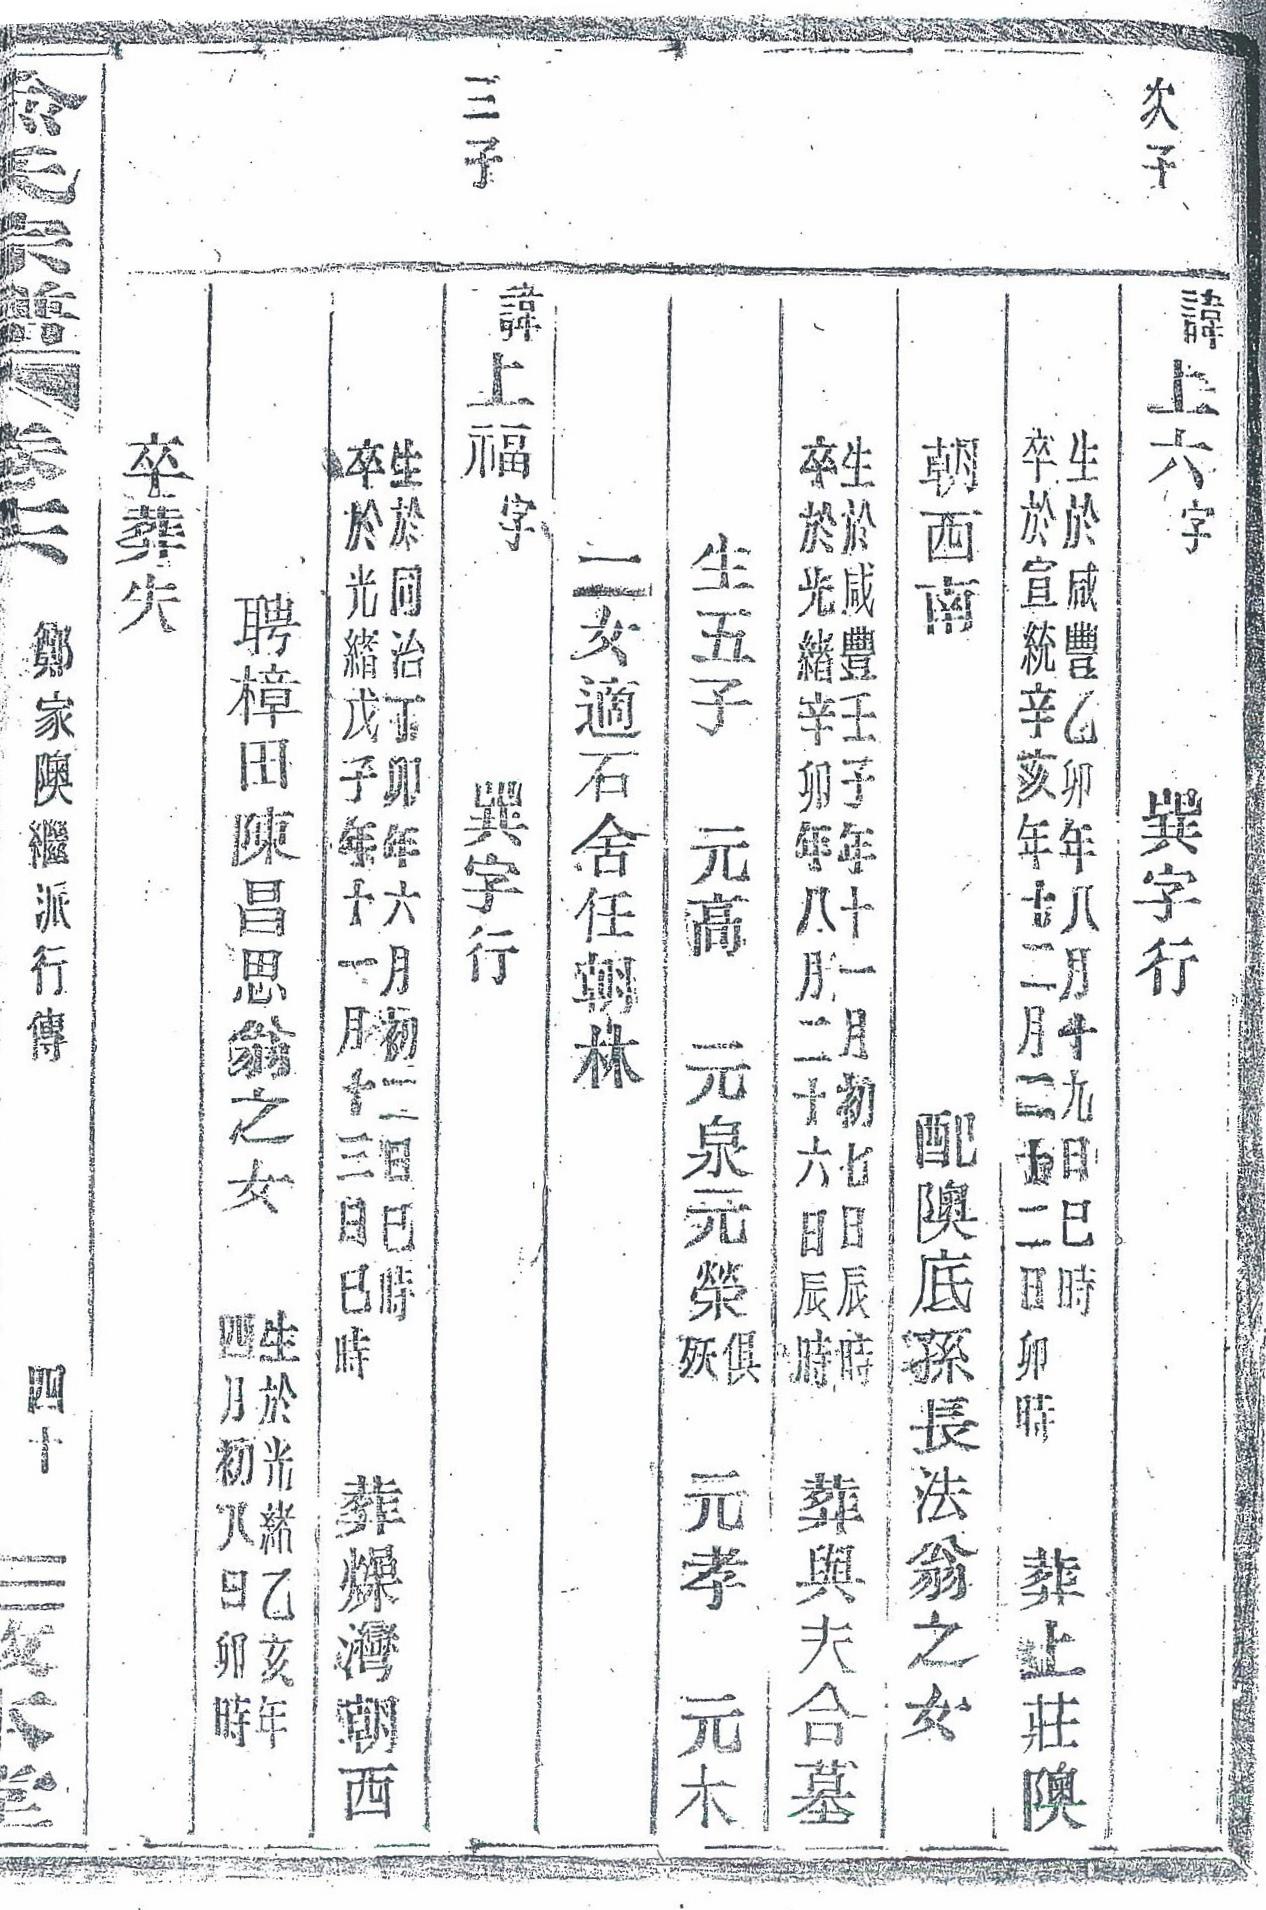 次子
諱上六字 巽字行
生於咸豐乙卯年八月十九日巳時
卒於宣統辛亥年十二月二十二日卯時
葬上莊隩
朝西南 配隩底孫長法翁之女
生於咸豐壬子年十一月初七日辰時
卒於光緒辛卯年八月二十六日辰時
葬與夫合墓
生五子 元高 元泉元榮俱殀 元孝 元木
一女適石舍任朝林
三子
諱上福字 巽字行
生於同治丁卯年六月初二日巳時
卒於光緒戊子年十一月十三日巳時
葬燥灣朝西
聘樟田陳昌思翁之女
生於光緒乙亥年
四月初八日卯時
卒葬失
宗譜 卷六 鄭家隩繼派行傳 四十 本堂